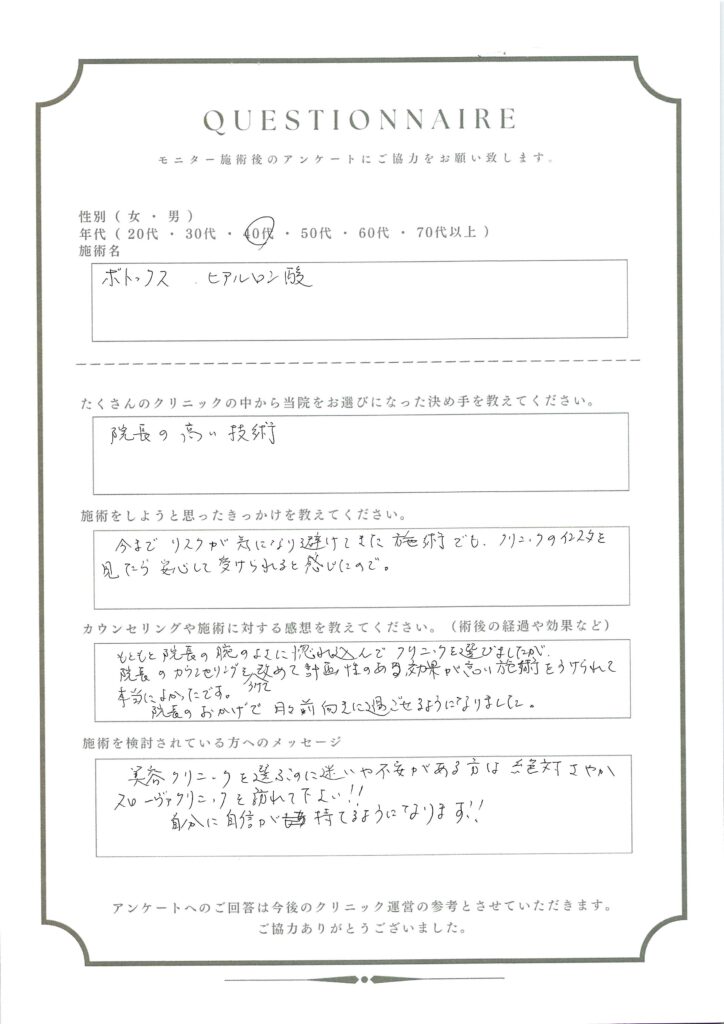 QUESTIONNAIRE
モニター施術後のアンケートにご協力をお願い致します。
性別 ( 女 ・ 男 )
年代 ( 20代 ・ 30代 ・ 40代 ・ 50代 ・ 60代 ・ 70代以上 )
施術名
ボトックス ヒアルロン酸
たくさんのクリニックの中から当院をお選びになった決め手を教えてください。
院長の高い技術
施術をしようと思ったきっかけを教えてください。
今までリスクが気になり避けてきた施術でも、クリニックのインスタを
見たら安心して受けられると感じたので。
カウンセリングや施術に対する感想を教えてください。（術後の経過や効果など）
もともと院長の腕のよさに惚れ込んでクリニックを選びましたが、
院長のカウンセリングを受けて改めて計画性のある効果が高い施術をうけられて
本当によかったです。
院長のおかげで日々前向きに過ごせるようになりました。
施術を検討されている方へのメッセージ
美容クリニックを選ぶのに迷いや不安がある方は絶対さやか
スローヴァクリニックを訪れて下さい!!
自分に自信が持てるようになります!!
アンケートへのご回答は今後のクリニック運営の参考とさせていただきます。
ご協力ありがとうございました。